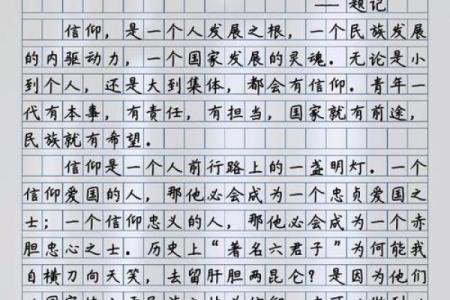 ——题记
信仰，是一个人发展之根，一个民族发展
的内驱动力，一个国家发展的灵魂。无论是小
到个人，还是大到集体，都会有信仰。青年一
代有本事，有责任，有担当，国家就有前途，
民族就有希望．
信仰是一个人前行路上的一盏明灯．一个
信仰爱国的人，那他必会成为一个忠贞爱国之
士；一个信仰忠义的人，那他必会成为一个赤
胆忠心之士．历史上“著名六君子”为何能我
自横刀向天笑，去留肝胆两昆仑？是因为他们